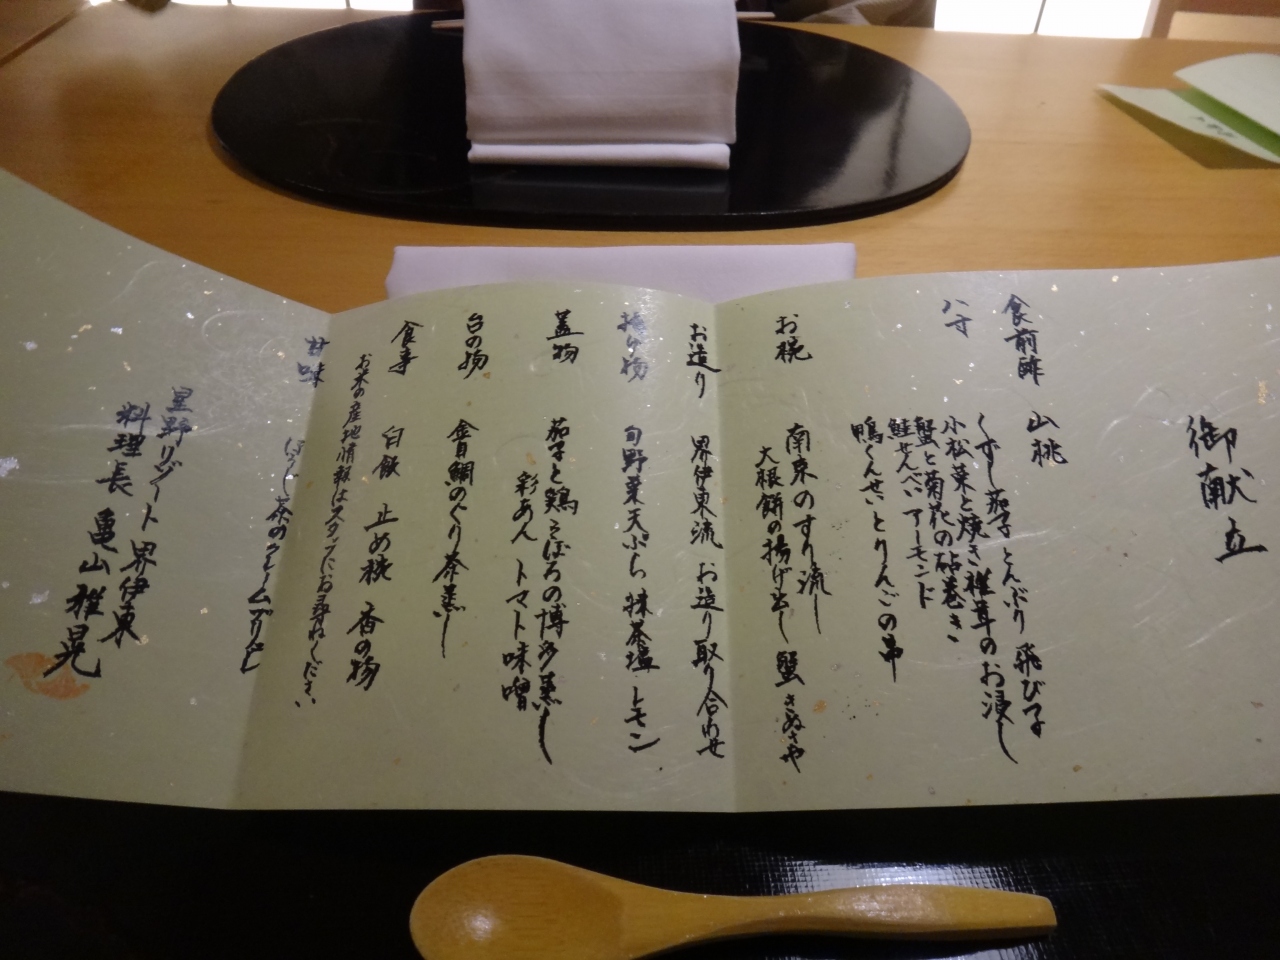 御献立
食前酢 山桃
八寸 くずし茄子 とんぶり 飛び子
小松菜と焼き椎茸のお浸し
蟹と菊花の砧巻き
鮭せんべい アーモンド
鴨くんせいとりんごの串
お椀 南京のすり流し
大根餅の揚げ出し 蟹 きぬさや
お造り 界伊東流 お造り取り合わせ
揚げ物 旬野菜天ぷら 抹茶塩 レモン
蓋物 茄子と鶏そぼろの博多蒸し
彩あん トマト味噌
台の物 金目鯛のぐり茶蒸し
食事 白飯 止め椀 香の物
お米の産地情報はスタッフにお尋ねください
甘味 ほうじ茶のクレームブリュレ
星野リゾート 界伊東
料理長 亀山雅晃